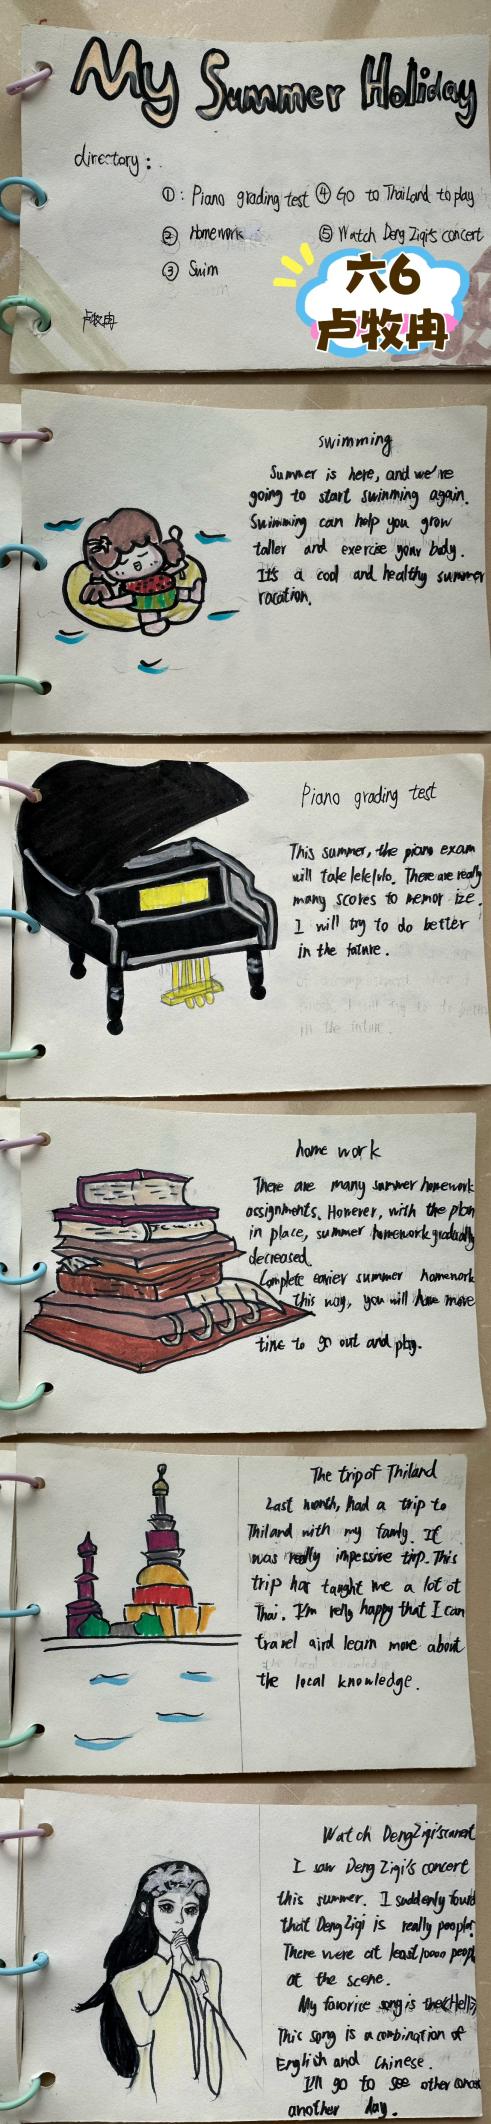 My Summer Holiday
directory:
①: Piano grading test ④ Go to Thailand to play
② Homework ⑤ Watch Deng Ziqi's concert
③ Swim
六6
卢牧冉
卢牧冉
swimming
Summer is here, and we're
going to start swimming again.
Swimming can help you grow
taller and exercise your body.
It's a cool and healthy summer
racation.
Piano grading test
This summer, the piano exam
will take There are really
many scores to memor ize.
I will try to do better
in the future.
home work
There are many summer homework
assignments. However, with the plan
in place, summer homework gradually
decreased.
Complete earier summer homework
This way, you will have more
time to go out and play.
The trip of Thiland
Last month, had a trip to
Thiland with my family. It
was really impessive trip. This
trip has taught me a lot of
Thai. I'm relly happy that I can
travel aird learn more about
the local knowledge.
Watch DengZiqi's
I saw Deng Ziqi's concert
this summer. I suddenly found
that Deng Ziqi is really
There were at least 10000 peopl
at the scene.
My favorite song is the
This song is a combination of
English and Chinese.
I'll go to see other
another day.